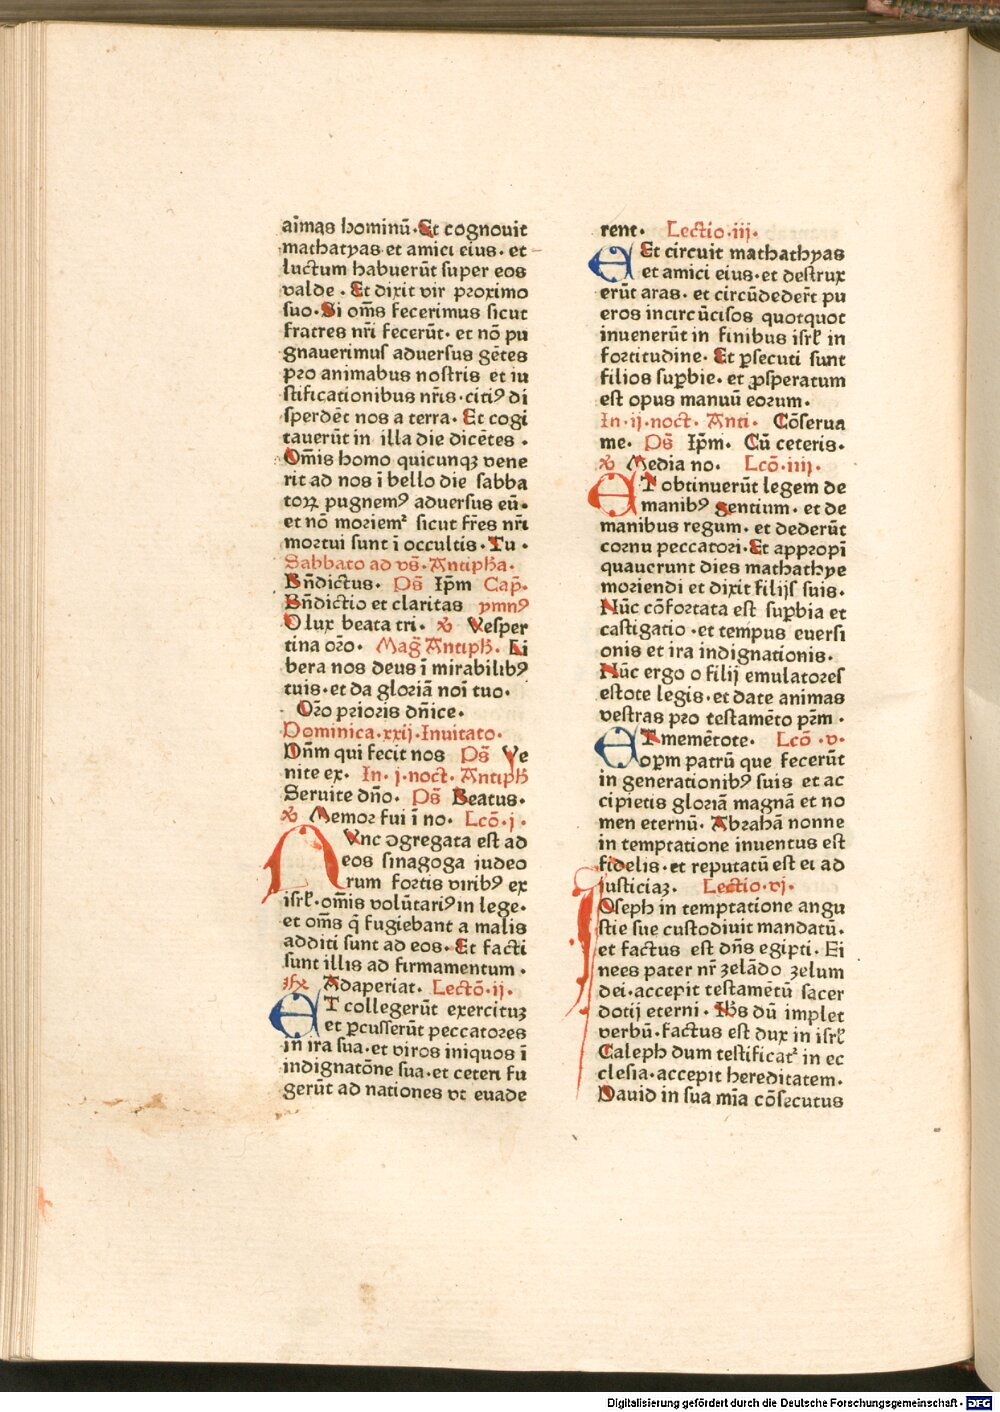 aı̄mas hominū·Et cognouit
mathatyas et amici eius· et
luctum habuerūt super eos
valde · Et dixit vir proximo
suo·Si om̄s fecerimus sicut
fratres nr̄i fecerūt· et nō pu
gnauerimus aduersus gētes
pro animabus nostris et iu
stificationibus nr̄is·citiꝰ di
sperdēt nos a terra· Et cogi
tauerūt in illa die dicētes ·
Om̄is homo quicunqꝫ vene
rit ad nos ī bello die sabba
toꝝ pugnemꝰ aduersus eū·
et nō moriemᷣ sicut fr̄es nr̄i
mortui sunt ī occultis·Tu·
Sabbato ad vs̄·Antipha·
Bn̄dictus· Ps̄ Ip̄m Cap̄·
Bn̄dictio et claritas ymnꝰ
O lux beata tri· ℣ Vesper
tina or̄o· Mag̅ Antiph· Li
bera nos deus ī mirabilibꝰ
tuis·et da gloriā noı̄ tuo·
Or̄o prioris dn̄ice·
Dominica·xxij·Inuitato·
Dn̄m qui fecit nos Ps̄ Ve
nite ex· In·j·noct·Antiph
Seruite dn̄o· Ps̄ Beatus·
℣ Memor fui ī no· Lcō·j·
Nunc ꝯgregata est ad
eos sinagoga iudeo
rum fortis viribꝰ ex
isrl̄·om̄is volūtariꝰ in lege·
et om̄s q̄ fugiebant a malis
additi sunt ad eos· Et facti
sunt illis ad firmamentum ·
℟ Adaperiat· Lectō·ij·
ET collegerūt exercituꝫ
et ꝑcusserūt peccatores
in ira sua·et viros iniquos ī
indignatōne sua·et ceteri fu
gerūt ad nationes vt euade
rent· Lectio·iij·
Et circuit mathathyas
et amici eius·et destrux
erūt aras· et circūdeder̄t pu
eros incircūcisos quotquot
inuenerūt in finibus isrl̄ in
fortitudine· Et ꝑsecuti sunt
filios suꝑbie· et ꝓsperatum
est opus manuū eorum·
In·ij·noct· Anti· Cōserua
me· Ps̄ Ip̄m· Cū ceteris·
℣ Media no· Lcō·iiij·
ET obtinuerūt legem de
manibꝰ gentium· et de
manibus regum· et dederūt
cornu peccatori·Et appropī
quauerunt dies mathathye
moriendi et dixit filijs suis·
Nūc cōfortata est suꝑbia et
castigatio ·et tempus euersi
onis et ira indignationis·
Nūc ergo o filij emulatores
estote legis·et date animas
vestras pro testamēto pr̄m ·
ET memētote· Lcō ·v·
oꝑm patrū que fecerūt
in generationibꝰ suis et ac
cipietis gloriā magnā et no
men eternū· Abrahā nonne
in temptatione inuentus est
fidelis·et reputatū est ei ad
justiciaꝫ· Lectio·vj·
IOseph in temptatione angu
stie sue custodiuit mandatū·
et factus est dn̄s egipti· Fi
nees pater nr̄ zelādo zelum
dei·accepit testamētū sacer
dotij eterni· Ihs̄ dū implet
verbū·factus est dux in isrl̄
Caleph dum testificatᷣ in ec
clesia·accepit hereditatem·
Dauid in sua mı̄a cōsecutus
Digitalisierung gefördert durch die Deutsche Forschungsgemeinschaft - DFG